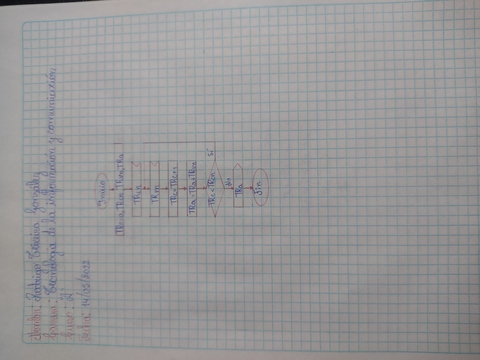 Nombre: Rodrigo Teixeira Gonzalez
Carrera: Tecnologia de la información y comunicación
"2"
Fecha: 14/05/2022
Inicio
TRcn
TRm
TRc=TRc+1
TRa=TRa+TRm
TRc<TRcn
Si
No
TRa
Fin